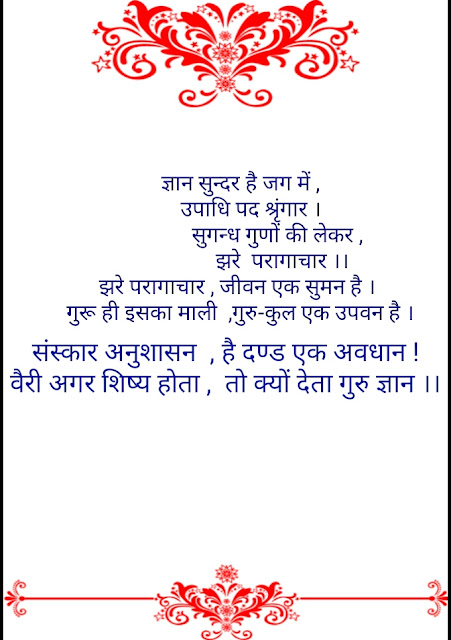 ज्ञान सुन्दर है जग में ,
उपाधि पद श्रृंगार ।
सुगन्ध गुणों की लेकर ,
झरे  परागाचार ।।
झरे परागाचार , जीवन एक सुमन है ।
गुरू ही इसका माली  ,गुरु-कुल एक उपवन है ।
संस्कार अनुशासन  , है दण्ड एक अवधान !
वैरी अगर शिष्य होता ,  तो क्यों देता गुरु ज्ञान ।।